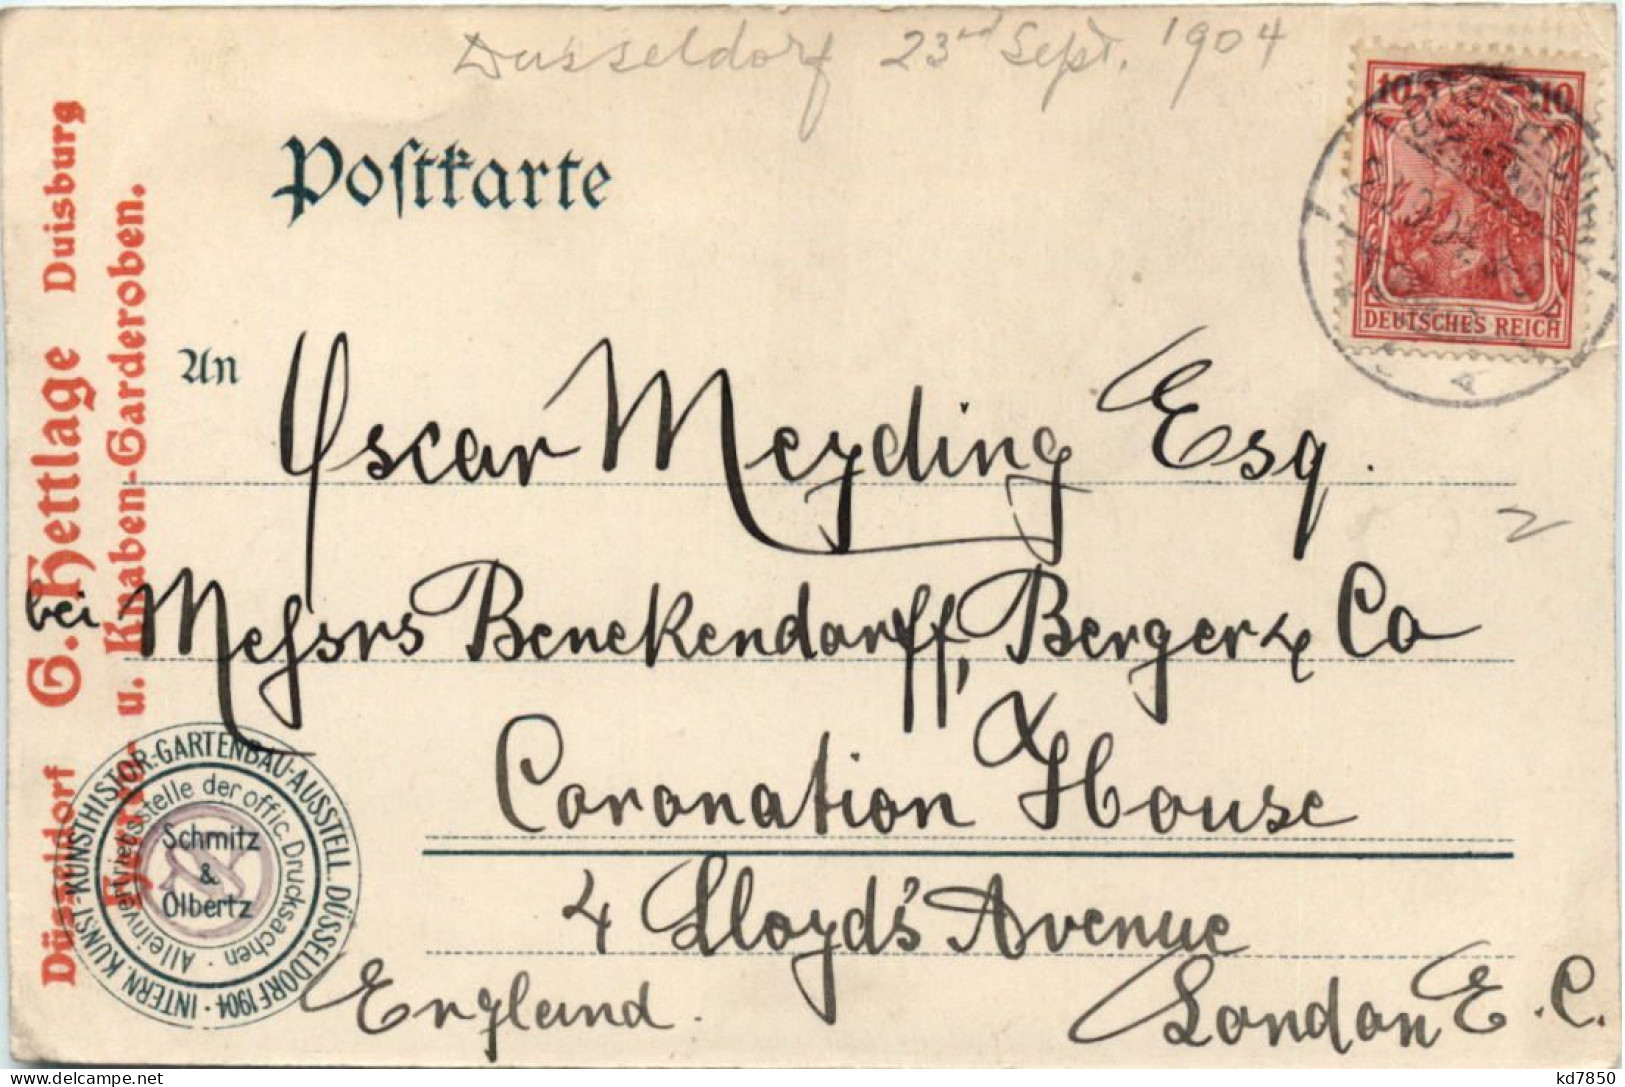 Dusseldorf 23rd Sept. 1904
10 10
DEUTSCHES REICH
Postkarte
An
Oscar Meyding Esq.
bei Messrs Benekendorff, Berger & Co
Coronation House
4 Lloyd's Avenue
England. London E.C.
Düsseldorf G. Hettlage Duisburg
Herren- u. Knaben-Garderoben.
INTERN. KUNST-KUNSTHISTOR.-GARTENBAU-AUSSTELL. DÜSSELDORF 1904
Alleinvertriebsstelle der offic. Drucksachen
Schmitz
&
Olbertz
kd7850